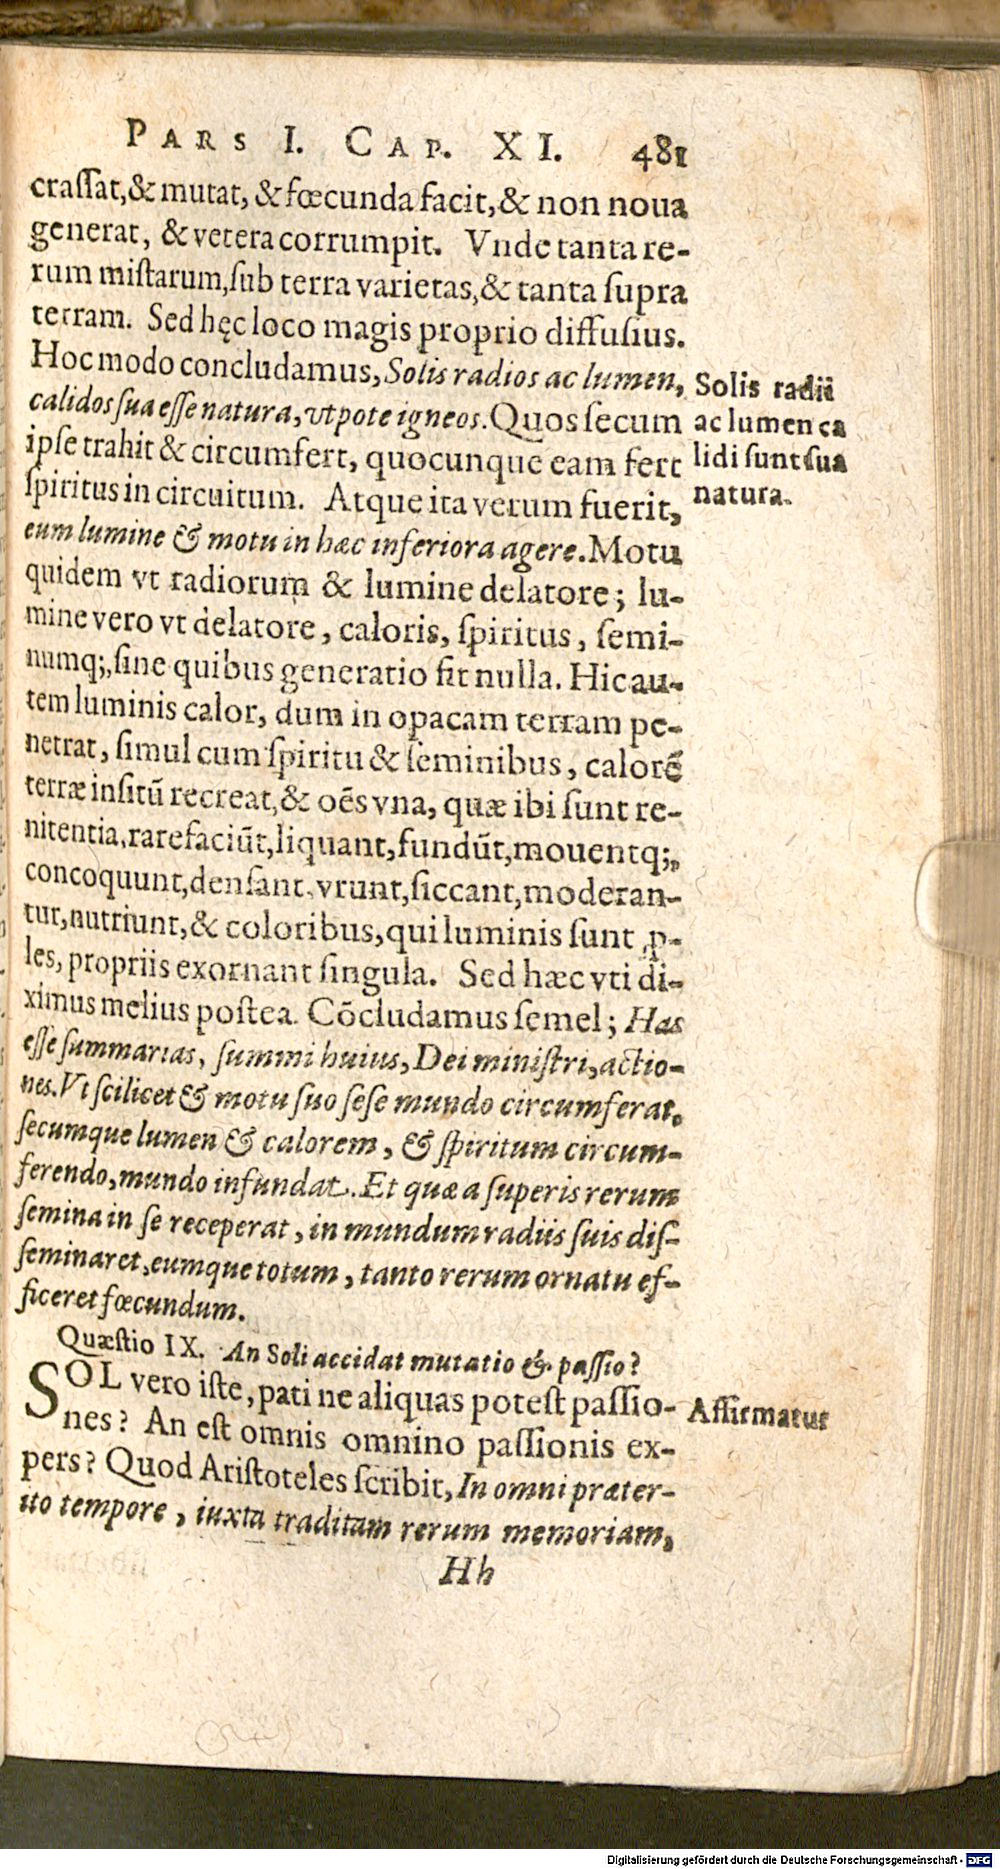 PARS I. CAP. XI. 481
crassat,& mutat, & fœcunda facit,& non noua
generat, & vetera corrumpit. Vnde tanta re-
rum mistarum,sub terra varietas,& tanta supra
terram. Sed hęc loco magis proprio diffusius.
Hoc modo concludamus,Solis radios ac lumen,
calidos sua esse natura,vtpote igneos. Quos secum
ipse trahit & circumfert, quocunque eam fert
spiritus in circuitum. Atque ita verum fuerit,
eum lumine & motu in hæc inferiora agere. Motu
quidem vt radiorum & lumine delatore; lu-
mine vero vt delatore, caloris, spiritus, semi-
numq;,sine quibus generatio fit nulla. Hic au-
tem luminis calor, dum in opacam terram pe-
netrat, simul cum spiritu & seminibus, calorē
terræ insitū recreat,& oēs vna, quæ ibi sunt re-
nitentia,rarefaciūt,liquant,fundūt,mouentq;,
concoquunt,densant,vrunt,siccant,moderan-
tur,nutriunt,& coloribus,qui luminis sunt ꝓ-
les, propriis exornant singula. Sed hæc vti di-
ximus melius postea. Cōcludamus semel; Has
esse summarias, summi huius, Dei ministri,actio-
nes. Vt scilicet & motu suo sese mundo circumferat,
secumque lumen & calorem, & spiritum circum-
ferendo,mundo infundat. Et quæ a superis rerum
semina in se receperat, in mundum radiis suis dis-
seminaret,eumque totum, tanto rerum ornatu ef-
ficeret fœcundum.
Quæstio IX. An Soli accidat mutatio & passio?
SOL vero iste, pati ne aliquas potest passio-
nes? An est omnis omnino passionis ex-
pers? Quod Aristoteles scribit, In omni præter-
ito tempore, iuxta traditam rerum memoriam,
Hh
Solis radii
ac lumen ca
lidi sunt sua
natura.
Affirmatur
Digitalisierung gefördert durch die Deutsche Forschungsgemeinschaft - DFG